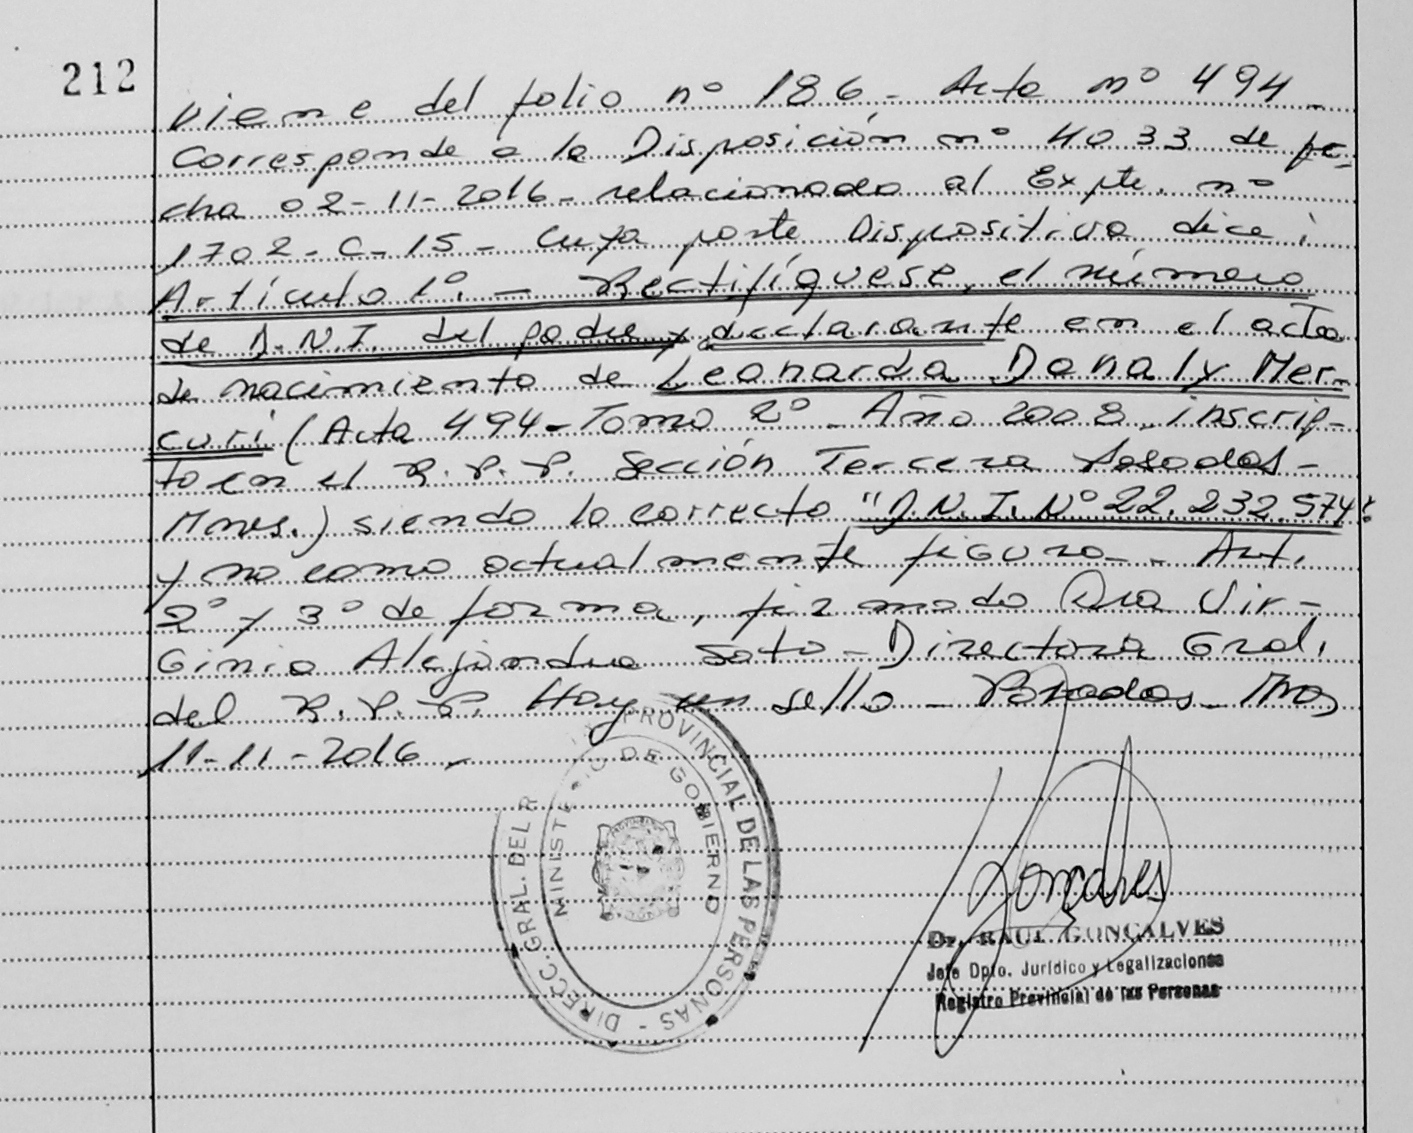 212
Viene del folio nº 186 - Acta nº 494 -
Corresponde a la Disposición nº 4033 de fe-
cha 02-11-2016 - relacionado al Expte. nº
1702-C-15 - cuya parte Dispositiva dice:
Artículo 1º. - Rectifíquese, el número
de D.N.I. del padre y declarante en el acta
de nacimiento de Leonarda Donaly Mer-
curi (Acta 494 - Tomo 2º - Año 2008, inscrip-
to en el R.P.P. Sección Tercera Posadas -
Mnes.) siendo lo correcto "D.N.I. Nº 22.232.574"
y no como actualmente figura - - Art.
2º y 3º de forma, firmado Dra Vir-
ginia Alejandra Soto - Directora Gral.
del R.P.P. Hay un sello - Posadas - Mnes
11-11-2016.
DIRECC. GRAL. DEL R PROVINCIAL DE LAS PERSONAS -
MINISTERIO DE GOBIERNO
Gonçalves
Dr. RAUL GONÇALVES
Jefe Dpto. Jurídico y Legalizaciones
Registro Provincial de las Personas